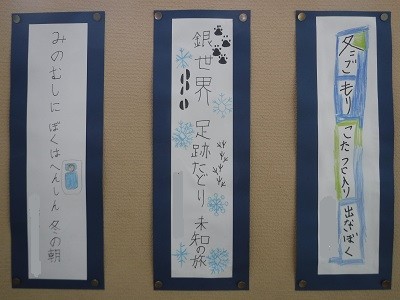 冬ごもり こたつ入り 出ないぼく
銀世界 足跡たどり 未知の旅
みのむしに ぼくはへんしん 冬の朝